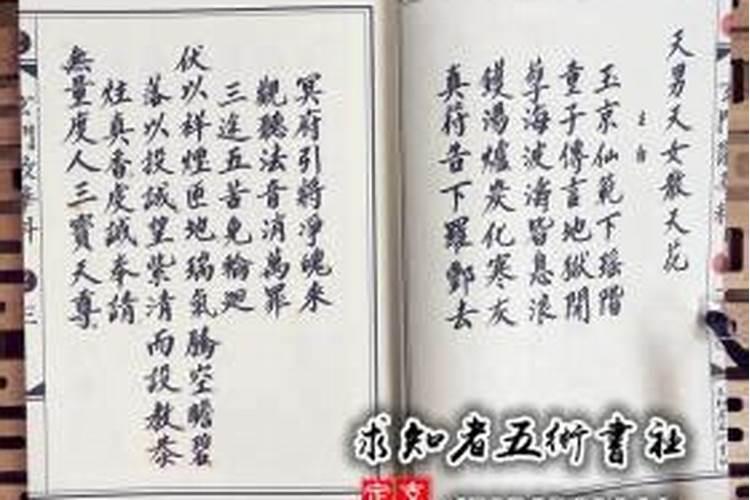 天男天女散天花
玉京仙範下瑶階
童子傳言地獄開
孽海波濤皆息浪
鑊湯爐炭化寒灰
真符告下羅酆去
冥府引將淨魄來
觀聽法音消萬罪
三途五苦免輪迴
伏以祥煙匝地瑞氣騰空瞻碧
落以投誠望紫清而設教恭
炷真香虔誠奉請
無量度人三寳天尊
求知者五術書社